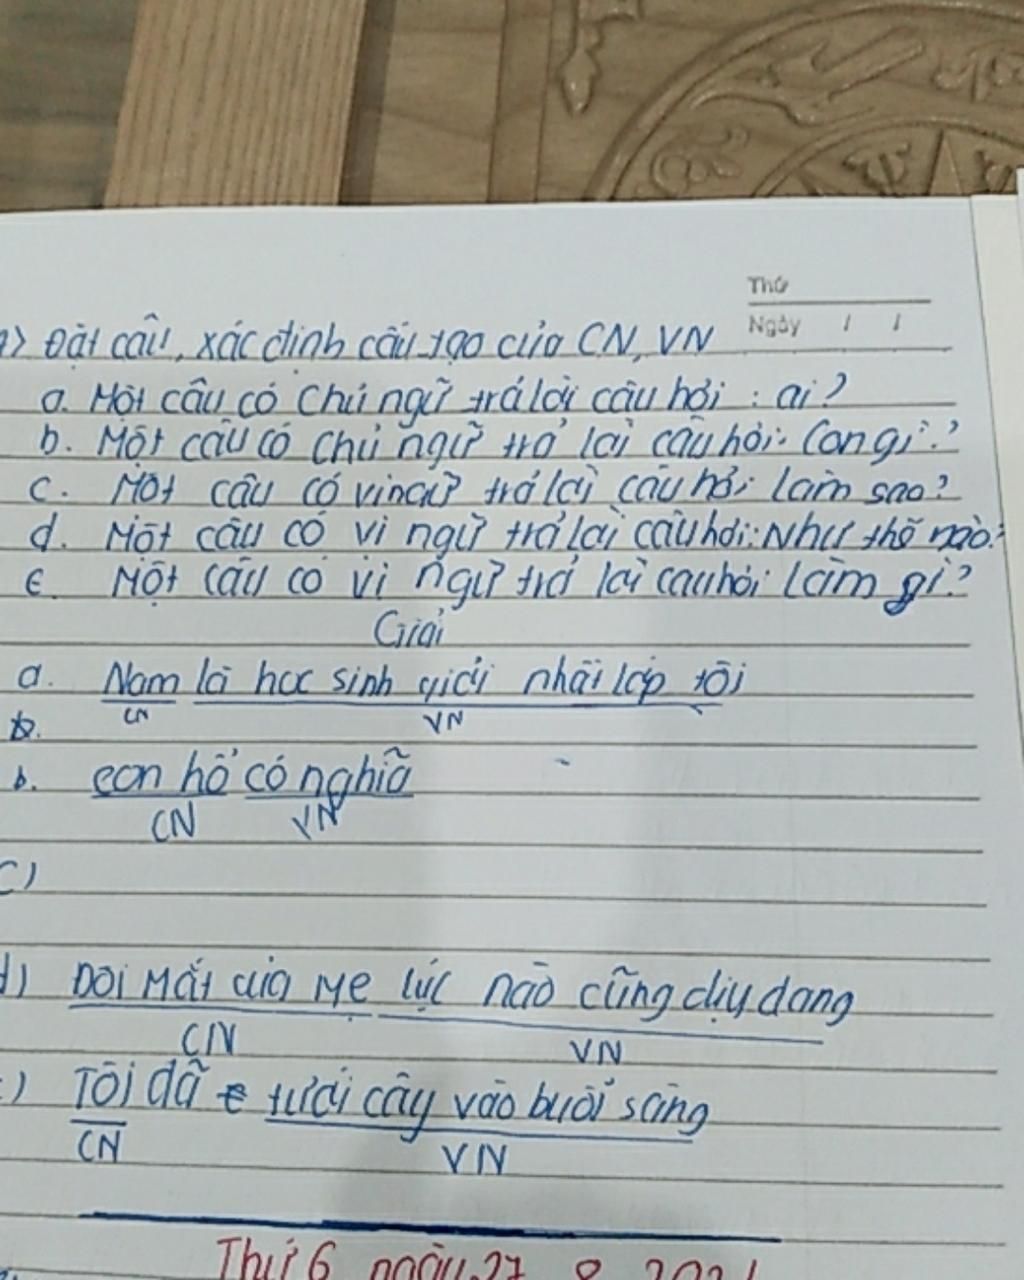 Thứ
Ngày / /
Đặt câu, xác định cấu tạo của CN, VN
a. Một câu có Chủ ngữ trả lời câu hỏi : ai?
b. Một câu có chủ ngữ trả lời câu hỏi: Con gì?
c. Một câu có vị ngữ trả lời câu hỏi làm sao?
d. Một câu có vị ngữ trả lời câu hỏi: Như thế nào?
e. Một câu có vị ngữ trả lời câu hỏi làm gì?
Giải
a. Nam là học sinh giỏi nhất lớp tôi
CN VN
b.
b. con hổ có nghĩa
CN VN
c)
d) Đôi Mắt của Mẹ lúc nào cũng dịu dang
CN VN
) Tôi đã tưới cây vào buổi sáng
CN VN
Thứ 6 ngày 27 8 2021